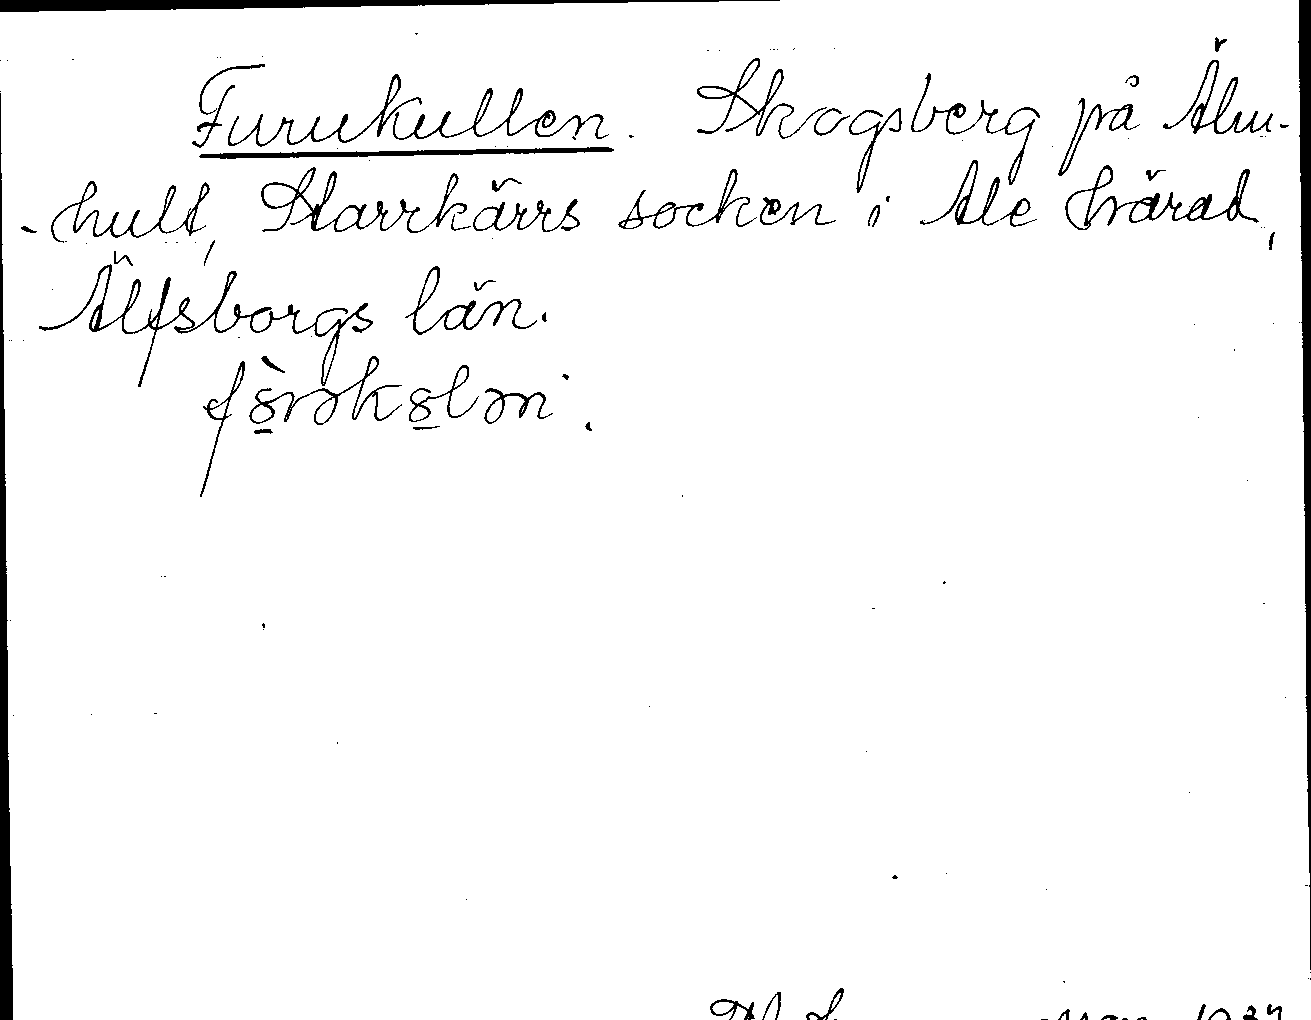 Furukullen. Skogsberg på Älm-
-hult, Starrkärrs socken i Ale härad,
Älfsborgs län.